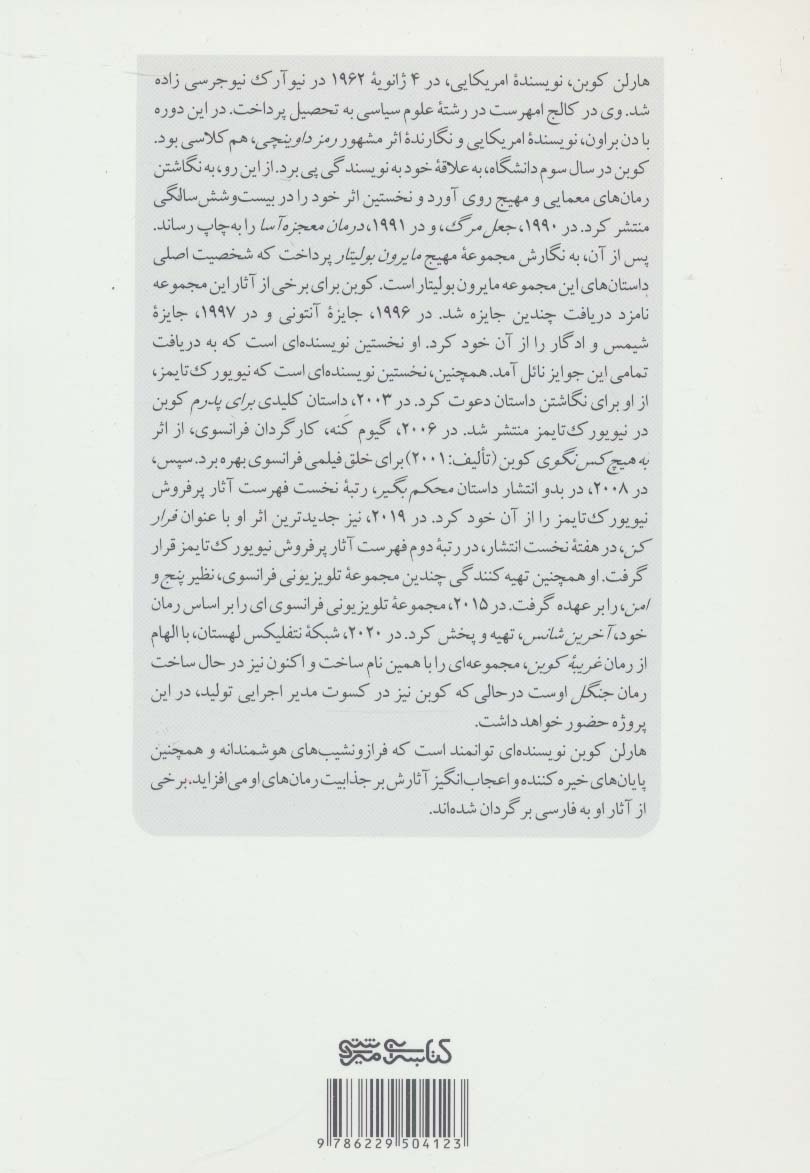 هارلن کوبن، نویسندهٔ امریکایی، در ۴ ژانویهٔ ۱۹۶۲ در نیوآرک نیوجرسی زاده
شد. وی در کالج امهرست در رشتهٔ علوم سیاسی به تحصیل پرداخت. در این دوره
با دن براون، نویسندهٔ امریکایی و نگارندهٔ اثر مشهور رمز داوینچی، هم کلاسی بود.
کوبن در سال سوم دانشگاه، به علاقهٔ خود به نویسندگی پی برد. از این رو، به نگاشتن
رمان‌های معمایی و مهیج روی آورد و نخستین اثر خود را در بیست‌وشش‌سالگی
منتشر کرد. در ۱۹۹۰، جعل مرگ، و در ۱۹۹۱، درمان معجزه‌آسا را به‌چاپ رساند.
پس از آن، به نگارش مجموعهٔ مهیج مایرون بولیتار پرداخت که شخصیت اصلی
داستان‌های این مجموعه مایرون بولیتار است. کوبن برای برخی از آثار این مجموعه
نامزد دریافت چندین جایزه شد. در ۱۹۹۶، جایزهٔ آنتونی و در ۱۹۹۷، جایزهٔ
شیمس و ادگار را از آن خود کرد. او نخستین نویسنده‌ای است که به دریافت
تمامی این جوایز نائل آمد. همچنین، نخستین نویسنده‌ای است که نیویورک‌تایمز،
از او برای نگاشتن داستان دعوت کرد. در ۲۰۰۳، داستان کلیدی برای پدرم کوبن
در نیویورک‌تایمز منتشر شد. در ۲۰۰۶، گیوم کَنه، کارگردان فرانسوی، از اثر
به هیچ‌کس نگوی کوبن (تألیف: ۲۰۰۱) برای خلق فیلمی فرانسوی بهره برد. سپس،
در ۲۰۰۸، در بدو انتشار داستان محکم بگیر، رتبهٔ نخست فهرست آثار پرفروش
نیویورک‌تایمز را از آن خود کرد. در ۲۰۱۹، نیز جدیدترین اثر او با عنوان فرار
کن، در هفتهٔ نخست انتشار، در رتبهٔ دوم فهرست آثار پرفروش نیویورک‌تایمز قرار
گرفت. او همچنین تهیه‌کنندگی چندین مجموعهٔ تلویزیونی فرانسوی، نظیر پنج و
امن، را بر عهده گرفت. در ۲۰۱۵، مجموعهٔ تلویزیونی فرانسوی ای را بر اساس رمان
خود، آخرین شانس، تهیه و پخش کرد. در ۲۰۲۰، شبکهٔ نتفلیکس لهستان، با الهام
از رمان غریبهٔ کوبن، مجموعه‌ای را با همین نام ساخت و اکنون نیز در حال ساخت
رمان جنگل اوست درحالی‌که کوبن نیز در کسوت مدیر اجرایی تولید، در این
پروژه حضور خواهد داشت.
هارلن کوبن نویسنده‌ای توانمند است که فرازونشیب‌های هوشمندانه و همچنین
پایان‌های خیره‌کننده و اعجاب‌انگیز آثارش بر جذابیت رمان‌های او می‌افزاید. برخی
از آثار او به فارسی برگردان شده‌اند.
کتابسرای میردشتی
9 786229 504123